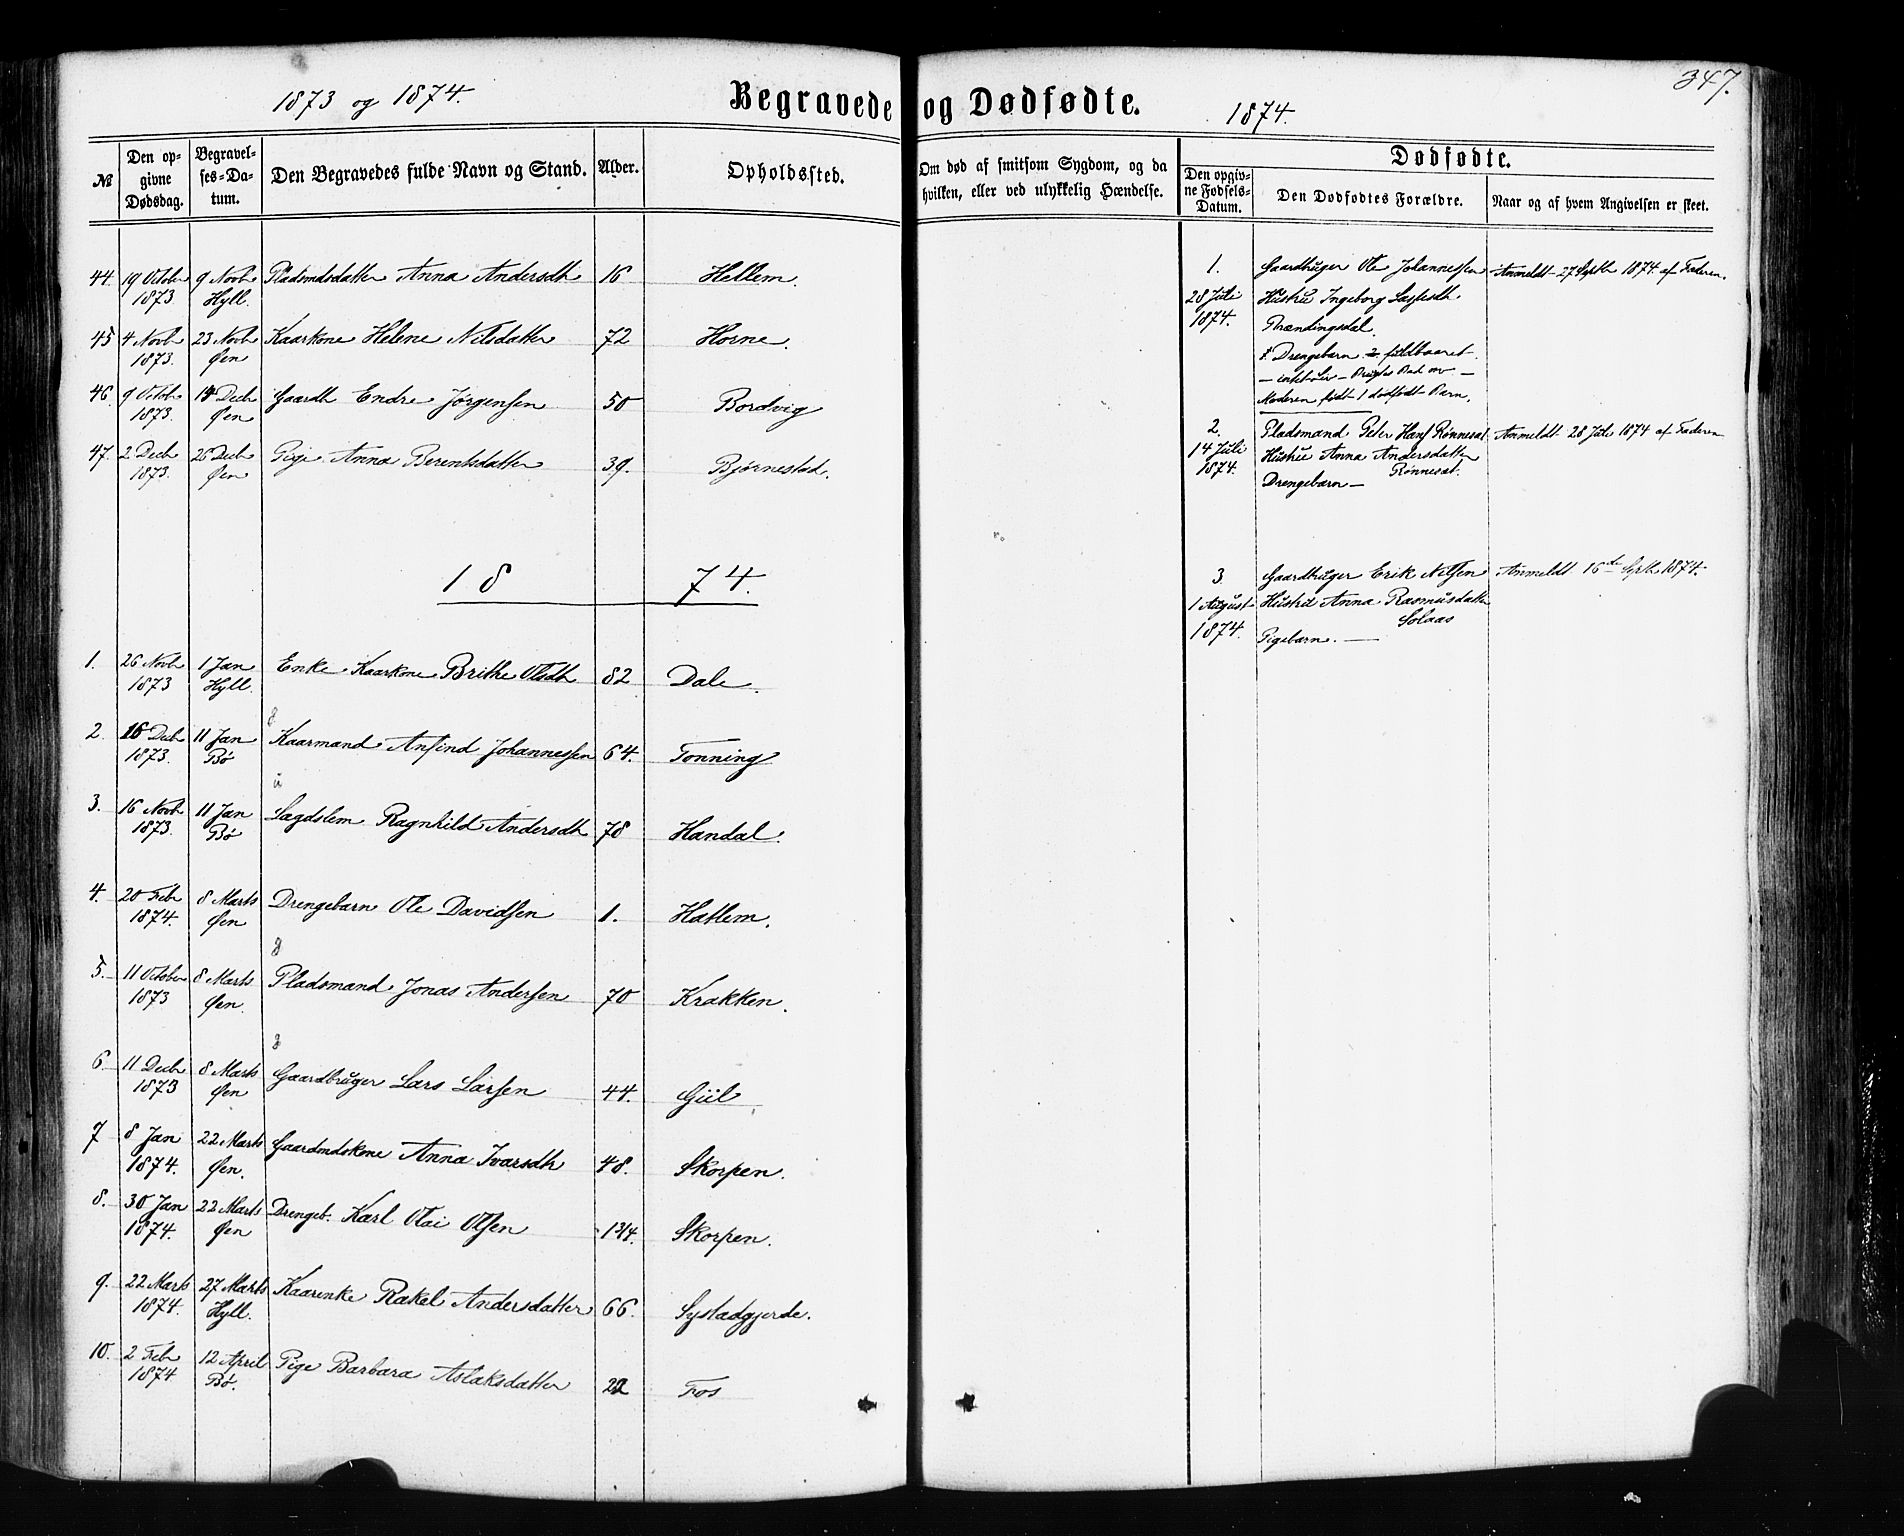 1873 og 1874.
Begravede og Dødfødte.
1874.
347.
№
Den op-
givne
Dødsdag.
Begravel-
ses-Da-
tum.
Den Begravedes fulde Navn og Stand.
Alder.
Opholdssted.
Om død af smitsom Sygdom, og da
hvilken, eller ved ulykkelig Hændelse.
Dødfødte.
Den opgiv-
ne Fødsels-
Datum.
Den Dødfødtes Forældre.
Naar og af hvem Angivelsen er skeet.
44. 19 Octobr 9 Novbr Pladsmdsdatter Anna Andersdtr 16 Hellem.
1873. Hyll.
45 4 Novbr 23 Novbr Kaarkone Helene Nilsdatter 72 Horne.
1873. Øen
46. 9 Octobr Decbr Gaardb Endre Jørgensen 50 Bordvig
1873. Øen
47. 2 Decbr 26 Decbr Pige Anna Berentsdatter 39. Bjørnestad.
1873. Øen
1874.
1. 26 Novbr 1 Jan Enke Kaarkone Brithe Olsdtr 82 Dale.
1873 Hyll.
2. 16 Decbr 11 Jan Kaarmand Anfind Johannessen 64. Tonning
1873. Bø
3. 16 Novbr 11 Jan Lægdslem Ragnhild Andersdtr 78 Handal.
1873. Bø
4. 20 Febr 8 Marts Drengebarn Ole Davidsen 1. Hatlem.
1874. Øen
5. 11 October 8 Marts Pladsmand Jonas Andersen 70 Krakken.
1873 Øen.
6. 11 Decbr 8 Marts Gaardbruger Lars Larsen 44.
1873 Øen
7 8 Jan 22 Marts Gaardmdskone Anna Ivarsdtr 48. Skorpen.
1874. Øen.
8. 30 Jan 22 Marts Drengeb. Karl Olai Olsen Skorpen.
1874. Øen
9. 22 Marts 27 Marts Kaarenke Rakel Andersdatter 66. Systadgjerde.
1874. Hyll.
10. 2 Febr 12 April Pige Barbara Aslaksdatter 22 Fos
1874 Bø.
1. Gaardbruger Ole Johannessen Anmeldt 27 Septbr 1874 af Faderen.
28 Juli Hustru Ingeborg
1874. Thrændingsdal.
Drengebarn fuldbaaret
— intet Liv —
Moderen født 1 dødfødt Barn.
2. Pladsmand Peter Hans Rønnesæt. Anmeldt 28 Juli 1874 af Faderen
14 Juli Hustru Anna Andersdatter
1874. Rønnesæt.
Drengebarn —
3. Gaardbruger Erik Nilsen Anmeldt 16de Septbr 1874.
1 August Hustru Anna Rasmusdatter
1874. Solaas
Pigebarn. —